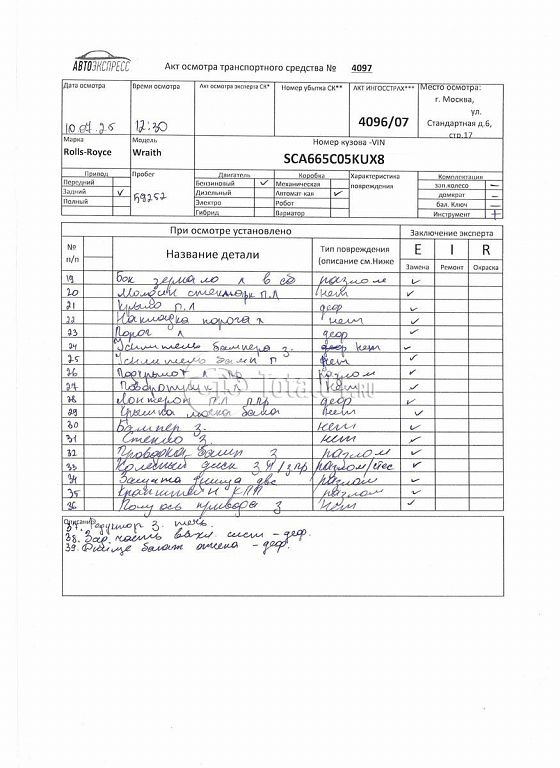 АВТОЭКСПРЕСС
Акт осмотра транспортного средства № 4097
Дата осмотра Время осмотра Акт осмотра эксперта СК* Номер убытка СК** АКТ ИНГОССТРАХ*** Место осмотра:
г. Москва,
ул.
10.07.25 12:30 4096/07 Стандартная д.6,
стр.17
Марка Модель Номер кузова -VIN
Rolls-Royce Wraith SCA665C05KUX8
Привод Пробег Двигатель Коробка Характеристика повреждения Комплектация
Передний Бензиновый ✓ Механическая зап.колесо —
Задний ✓ 59252 Дизельный Автомат-кая ✓ домкрат —
Полный Электро Робот бал. Ключ —
Гибрид Вариатор Инструмент +
При осмотре установлено Заключение эксперта
№ п/п Название детали Тип повреждения (описание см.Ниже E I R
Замена Ремонт Окраска
19 Бок зеркало л в сб разлом ✓
20 п.л нет ✓
21 Крыло п.л деф ✓
22 Накладка порога л нет ✓
23 Порог л деф ✓
24 Усилитель бампера з. нет ✓
25 Усилитель п нет ✓
26 Подкрылок л пр разлом ✓
27 л нет ✓
28 Лонжерон п.л п.пр деф ✓
29 Крышка нет ✓
30 Бампер з. нет ✓
31 Стекло з. нет ✓
32 Проводка бампер з разлом ✓
33 Колесный диск з л/з пр разлом ✓
34 Защита днища двс разлом ✓
35 КПП разлом ✓
36 Полуось привода з нет ✓
Описание
37. Редуктор з. течь.
38. Зад. часть выхл. сист - деф.
39. Днище багаж отсека - деф.
Total
.RU